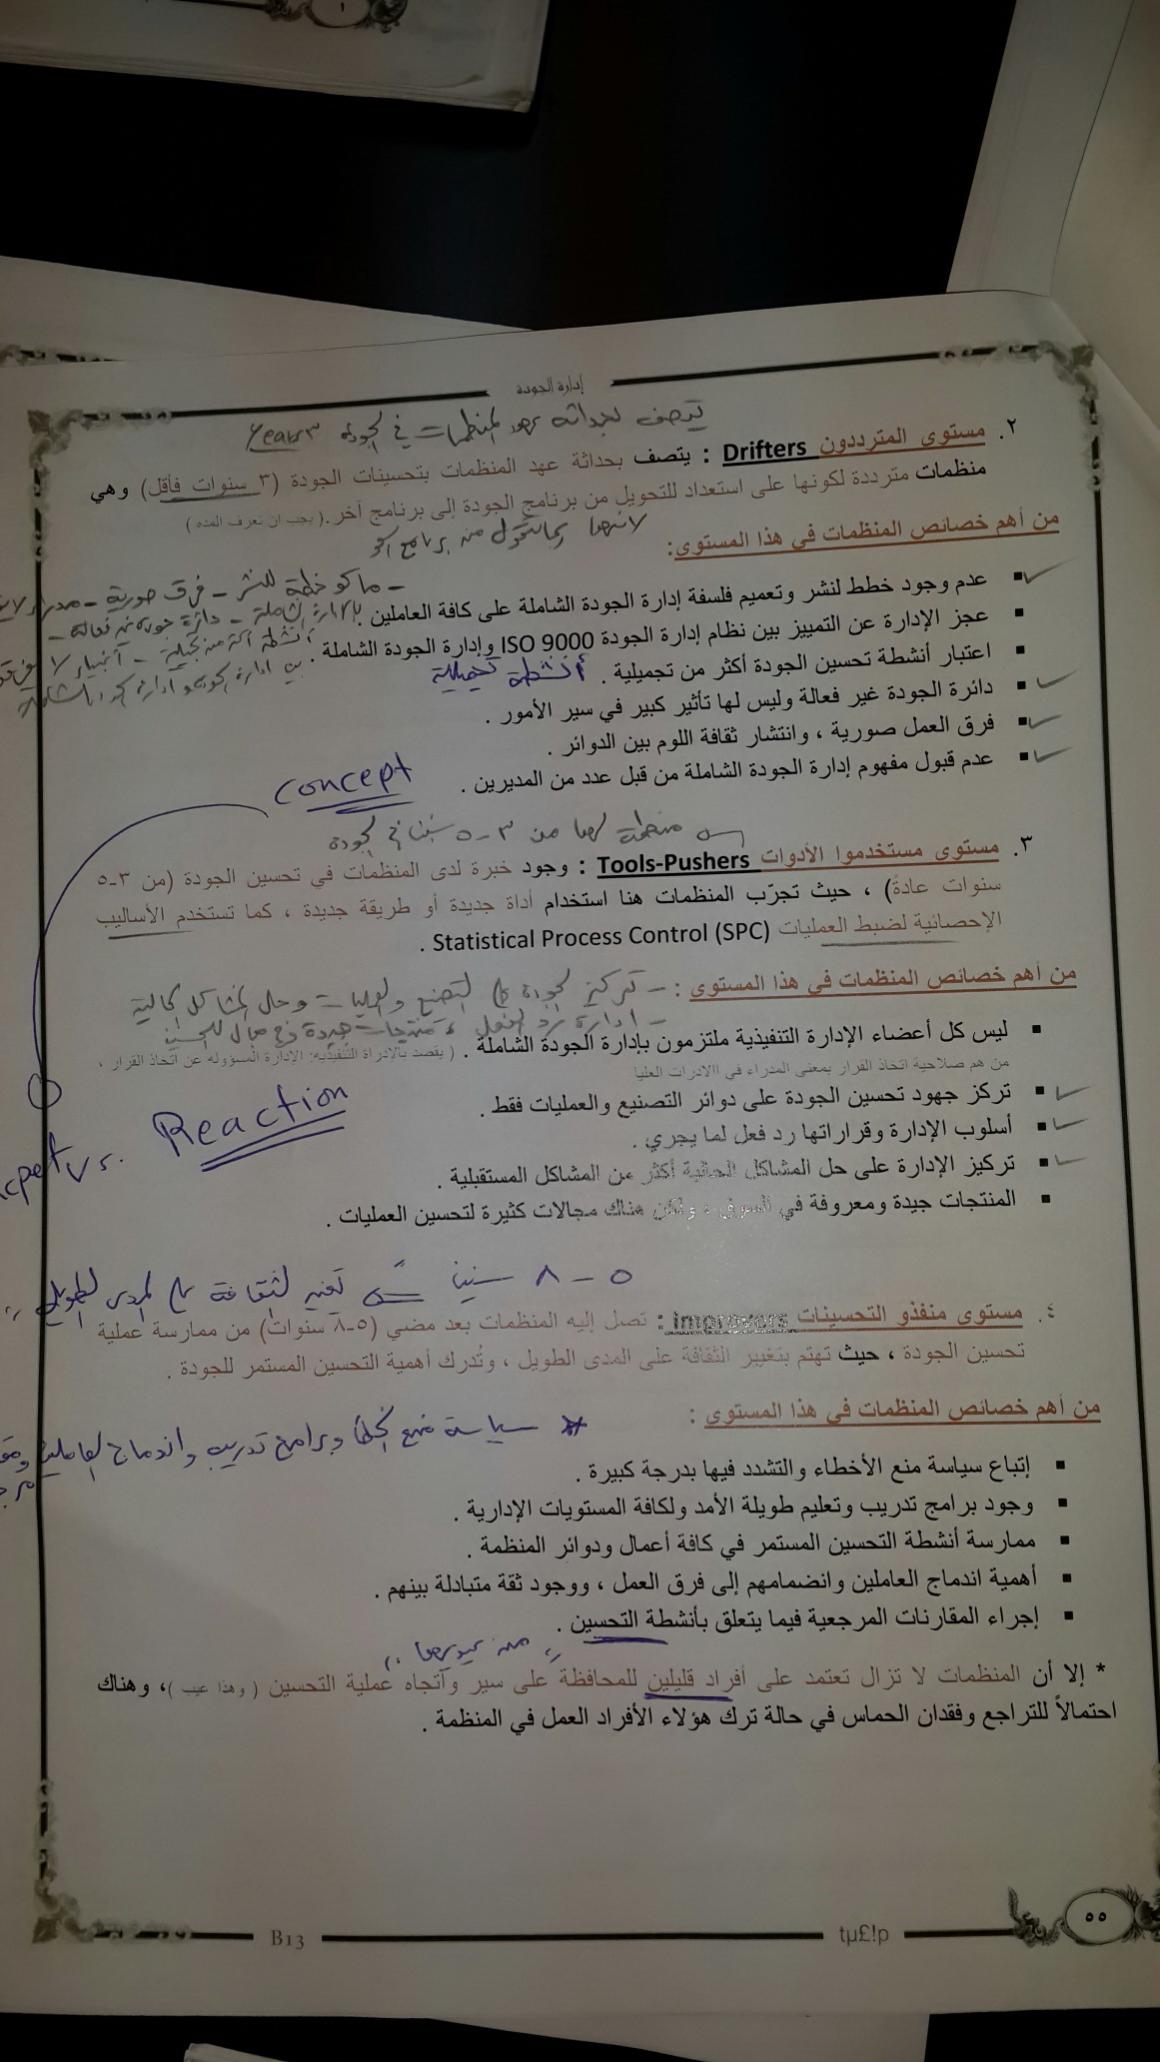 ١
إدارة الجودة
تتصف بحداثة عهد المنظمات في الجودة ٣ Years
٢. مستوى المترددون Drifters : يتصف بحداثة عهد المنظمات بتحسينات الجودة (٣ سنوات فأقل) وهي
منظمات مترددة لكونها على استعداد للتحويل من برنامج الجودة إلى برنامج آخر .( يجب ان تعرف المده )
من أهم خصائص المنظمات في هذا المستوى:
ماكو خطة للنشر - فرق صورية -
▪ عدم وجود خطط لنشر وتعميم فلسفة إدارة الجودة الشاملة على كافة العاملين .
▪ عجز الإدارة عن التمييز بين نظام إدارة الجودة ISO 9000 وإدارة الجودة الشاملة .
▪ اعتبار أنشطة تحسين الجودة أكثر من تجميلية . أنشطة تجميلية
▪ دائرة الجودة غير فعالة وليس لها تأثير كبير في سير الأمور .
▪ فرق العمل صورية ، وانتشار ثقافة اللوم بين الدوائر .
▪ عدم قبول مفهوم إدارة الجودة الشاملة من قبل عدد من المديرين .
Concept
منظمة لها من ٣-٥ سنين في الجودة
٣. مستوى مستخدموا الأدوات Tools-Pushers : وجود خبرة لدى المنظمات في تحسين الجودة (من ٣-٥
سنوات عادةً) ، حيث تجرّب المنظمات هنا استخدام أداة جديدة أو طريقة جديدة ، كما تستخدم الأساليب
الإحصائية لضبط العمليات Statistical Process Control (SPC) .
من أهم خصائص المنظمات في هذا المستوى : - تركيز الجودة على التصنيع والعمليات وحل المشاكل الحالية
▪ ليس كل أعضاء الإدارة التنفيذية ملتزمون بإدارة الجودة الشاملة . ( يقصد بالادراة التنفيذيه: الإدارة المسؤوله عن اتخاذ القرار ،
من هم صلاحية اتخاذ القرار بمعنى المدراء في الادرات العليا
▪ تركز جهود تحسين الجودة على دوائر التصنيع والعمليات فقط .
▪ أسلوب الإدارة وقراراتها رد فعل لما يجري .
Reaction
▪ تركيز الإدارة على حل المشاكل الحالية أكثر من المشاكل المستقبلية .
▪ المنتجات جيدة ومعروفة في السوق ، ولكن هناك مجالات كثيرة لتحسين العمليات .
٥ - ٨ سنين تغيير الثقافة على المدى الطويل
٤. مستوى منفذو التحسينات Improvers : تصل إليه المنظمات بعد مضي (٥-٨ سنوات) من ممارسة عملية
تحسين الجودة ، حيث تهتم بتغيير الثقافة على المدى الطويل ، وتُدرك أهمية التحسين المستمر للجودة .
من أهم خصائص المنظمات في هذا المستوى :
* سياسة منع الخطأ وبرامج تدريب واندماج العاملين
▪ إتباع سياسة منع الأخطاء والتشدد فيها بدرجة كبيرة .
▪ وجود برامج تدريب وتعليم طويلة الأمد ولكافة المستويات الإدارية .
▪ ممارسة أنشطة التحسين المستمر في كافة أعمال ودوائر المنظمة .
▪ أهمية اندماج العاملين وانضمامهم إلى فرق العمل ، ووجود ثقة متبادلة بينهم .
▪ إجراء المقارنات المرجعية فيما يتعلق بأنشطة التحسين .
* إلا أن المنظمات لا تزال تعتمد على أفراد قليلين للمحافظة على سير وآتجاه عملية التحسين ( وهذا عيب )، وهناك
احتمالاً للتراجع وفقدان الحماس في حالة ترك هؤلاء الأفراد العمل في المنظمة .
B13
tµ£!p
٥٥